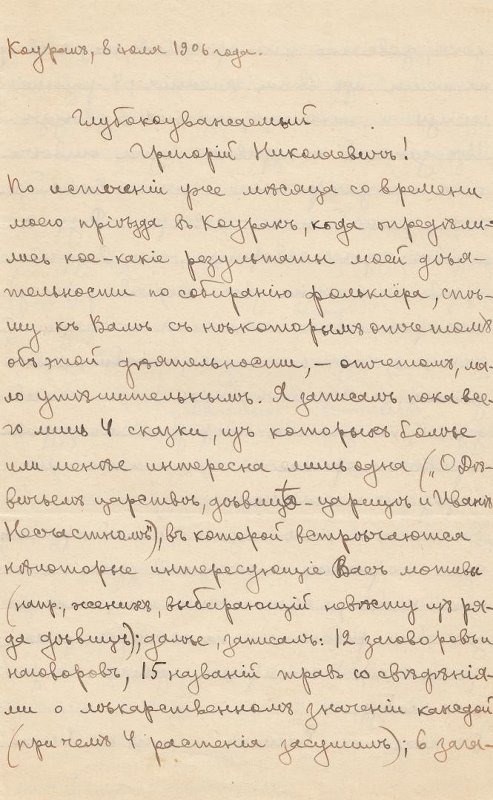 Коуракъ, 8 iюля 1906 года.
Глубокоуважаемый
Григорiй Николаевичъ!
По истеченiи уже мѣсяца со времени
моего прiѣзда въ Коуракъ, когда опредѣли-
лись кое-какiе результаты моей дѣя-
тельности по собиранiю фольклёра, спѣ-
шу къ Вамъ съ нѣкоторымъ отчетомъ
объ этой дѣятельности, – отчетомъ, ма-
ло утѣшительнымъ. Я записалъ пока все-
го лишь 4 сказки, изъ которыхъ болѣе
или менѣе интересна лишь одна („О Дѣ-
вичьемъ царствѣ, дѣвицѣ-царицѣ и Иванѣ
Несчастномъ"), въ которой встрѣчаются
нѣкоторые интересующiе Васъ мотивы
(напр., женихъ, выбирающiй невѣсту изъ ря-
да дѣвицъ); далѣе, записалъ: 12 заговоровъ и
наговоровъ, 15 названiй травъ со свѣдѣнiя-
ми о лѣкарственномъ значенiи каждой
(при чемъ 4 растенiя засушилъ); 6 зага-